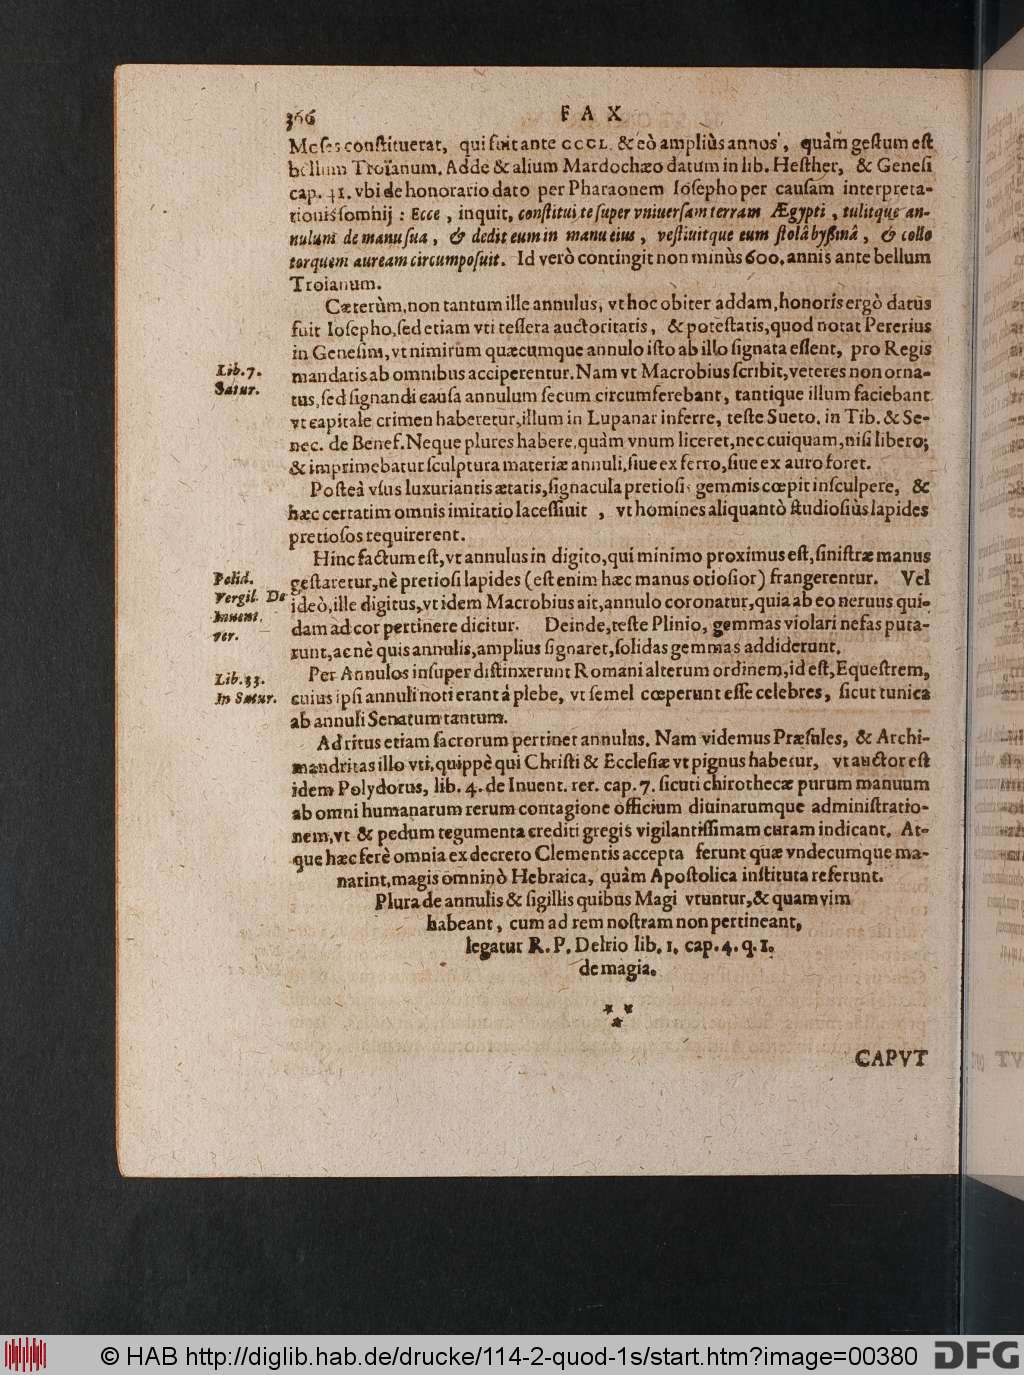 366
FAX
Moſes conſtituerat, qui fuit ante CCCL. & eò ampliùs annos, quàm geſtum eſt
bellum Troianum. Adde & alium Mardochæo datum in lib. Heſther, & Geneſi
cap. 41. vbi de honorario dato per Pharaonem Ioſepho per cauſam interpreta-
tionis ſomnij : Ecce, inquit, conſtitui te ſuper vniuerſam terram Ægypti, tulitque an-
nulum de manu ſua, & dedit eum in manu eius, veſtiuitque eum ſtolâ byßinâ, & collo
torquem auream circumpoſuit. Id verò contingit non minùs 600. annis ante bellum
Troianum.
Cæterùm, non tantum ille annulus, vt hoc obiter addam, honoris ergò datus
fuit Ioſepho, ſed etiam vti teſſera auctoritatis, & poteſtatis, quod notat Pererius
in Geneſim, vt nimirum quæcumque annulo iſto ab illo ſignata eſſent, pro Regis
mandatis ab omnibus acciperentur. Nam vt Macrobius ſcribit, veteres non orna-
Lib. 7.
Satur.
tus, ſed ſignandi cauſa annulum ſecum circumferebant, tantique illum faciebant
vt capitale crimen haberetur, illum in Lupanar inferre, teſte Sueto. in Tib. & Se-
nec. de Benef. Neque plures habere, quàm vnum liceret, nec cuiquam, niſi libero;
& imprimebatur ſculptura materiæ annuli, ſiue ex ferro, ſiue ex auro foret.
Poſteà vſus luxuriantis ætatis, ſignacula pretioſis gemmis cœpit inſculpere, &
hæc certatim omnis imitatio laceſſiuit, vt homines aliquantò ſtudioſiùs lapides
pretioſos requirerent.
Hinc factum eſt, vt annulus in digito, qui minimo proximus eſt, ſiniſtræ manus
geſtaretur, nè pretioſi lapides (eſt enim hæc manus otioſior) frangerentur. Vel
Polid.
Vergil. De
Inuent.
rer.
ideò, ille digitus, vt idem Macrobius ait, annulo coronatur, quia ab eo neruus qui-
dam ad cor pertinere dicitur. Deinde, teſte Plinio, gemmas violari nefas puta-
runt, ac nè quis annulis, amplius ſignaret, ſolidas gemmas addiderunt.
Per Annulos inſuper diſtinxerunt Romani alterum ordinem, id eſt, Equeſtrem,
Lib. 33.
In Satur.
cuius ipſi annuli noti erant á plebe, vt ſemel cœperunt eſſe celebres, ſicut tunica
ab annuli Senatum tantum.
Ad ritus etiam ſacrorum pertinet annulus. Nam videmus Præſules, & Archi-
mandritas illo vti, quippè qui Chriſti & Eccleſiæ vt pignus habetur, vt auctor eſt
idem Polydorus, lib. 4. de Inuent. rer. cap. 7. ſicuti chirothecæ purum manuum
ab omni humanarum rerum contagione officium diuinarumque adminiſtratio-
nem, vt & pedum tegumenta crediti gregis vigilantiſſimam curam indicant. At-
que hæc ferè omnia ex decreto Clementis accepta ferunt quæ vndecumque ma-
narint, magis omninò Hebraica, quàm Apoſtolica inſtituta referunt.
Plura de annulis & ſigillis quibus Magi vtuntur, & quam vim
habeant, cum ad rem noſtram non pertineant,
legatur R. P. Delrio lib. 1. cap. 4. q. 1.
de magia.
CAPVT
© HAB http://diglib.hab.de/drucke/114-2-quod-1s/start.htm?image=00380
DFG